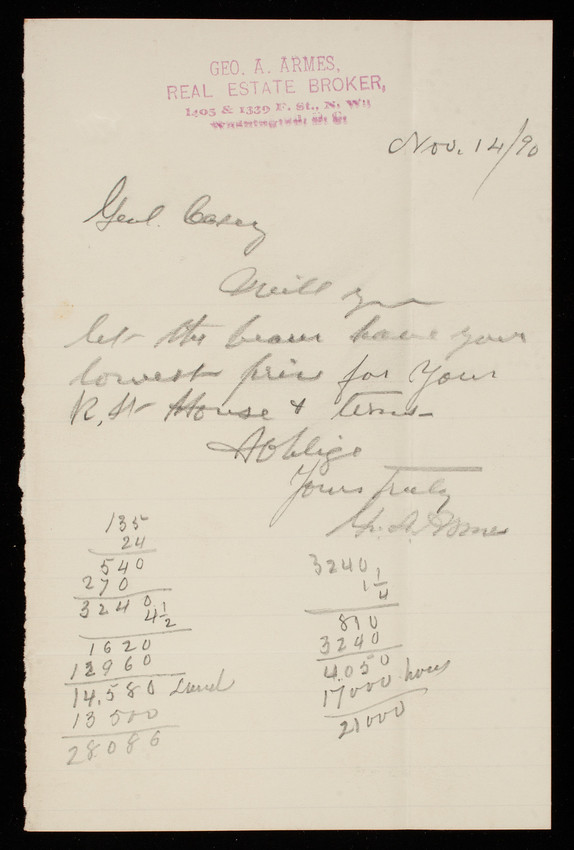 GEO. A. ARMES,
REAL ESTATE BROKER,
1405 & 1339 F. St., N. W.
Washington, D. C.
Nov. 14/90
Genl. Casey
Will you
let the bearer have your
lowest price for your
K. St House & terms
& Oblige
Yours Truly
Geo. A. Armes
135
24
540
270
3240
4 1/2
1620
12960
14,580 Land
13500
28086
3240
1 1/4
810
3240
4050
17000 house
21000